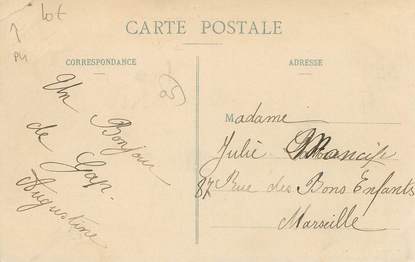 lot
PM
CARTE POSTALE
CORRESPONDANCE
ADRESSE
Un Bonjour
de Gap.
Augustine
Madame
Julie Mancip
87 Rue des Bons Enfants
Marseille